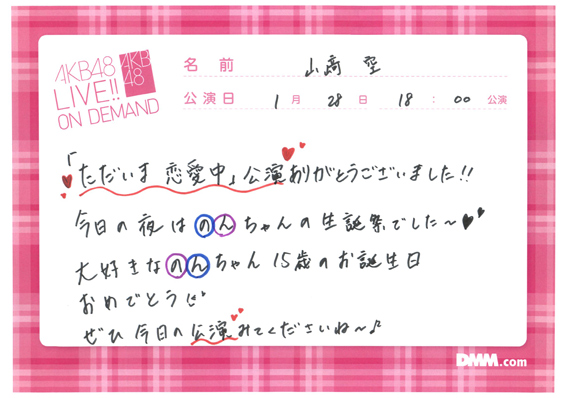 AKB48
LIVE!!
ON DEMAND
AKB
48
名前 山﨑 空
公演日 1月 28日 18:00 公演
「ただいま 恋愛中」公演ありがとうございました!!
今日の夜はのんちゃんの生誕祭でした〜♥♥
大好きなのんちゃん15歳のお誕生日
おめでとう
ぜひ 今日の公演みてくださいね〜♪
DMM.com